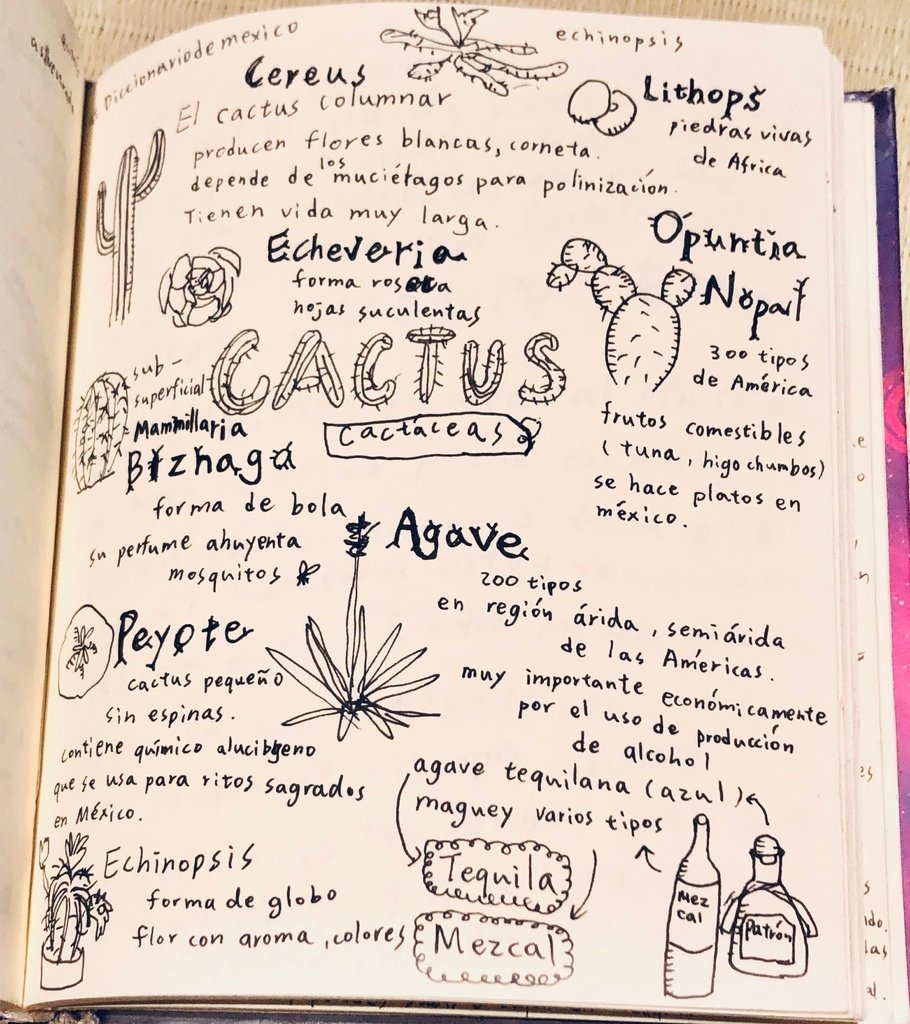 Diccionario de mexico
echinopsis
Cereus
El cactus columnar
producen flores blancas, corneta.
depende de los muciétagos para polinización.
Tienen vida muy larga.
Lithops
piedras vivas
de Africa
Echeveria
forma roseta
hojas suculentas
Opuntia
Nopal
300 tipos
de América
frutos comestibles
(tuna, higo chumbos)
se hace platos en
méxico.
CACTUS
cactáceas
sub-
superficial
Mammillaria
Biznaga
forma de bola
su perfume ahuyenta
mosquitos
Agave
200 tipos
en región árida, semiárida
de las Américas.
muy importante económicamente
por el uso de producción
de alcohol
agave tequilana (azul)
maguey varios tipos
Tequila
Mezcal
Mez
cal
Patrón
Peyote
cactus pequeño
sin espinas.
contiene químico
que se usa para ritos sagrados
en México.
Echinopsis
forma de globo
flor con aroma, colores